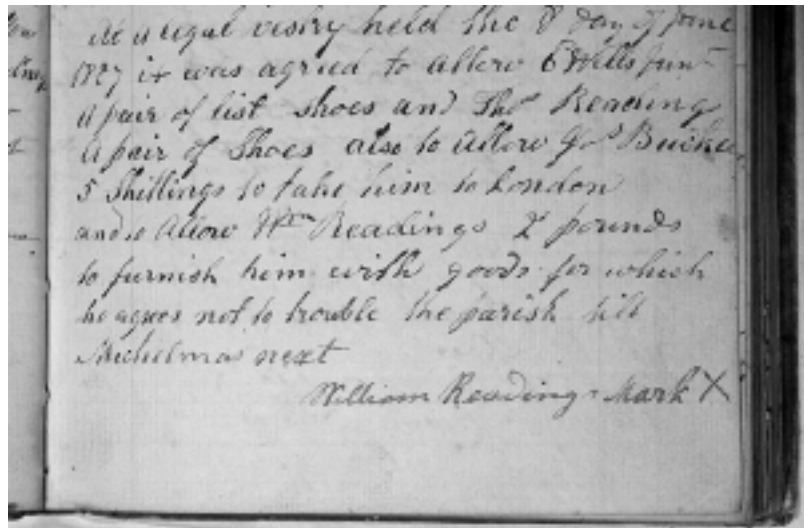 At a legal vestry held the 8 day of June
1827 it was agreed to allow Wells Junr
A pair of list shoes and Thos Reading
A pair of Shoes also to Allow Jos
5 Shillings to take him to London
and Allow Wm Readings 2 pounds
to furnish him with goods for which
he agrees not to trouble the parish till
Michelmas next
William Reading Mark X